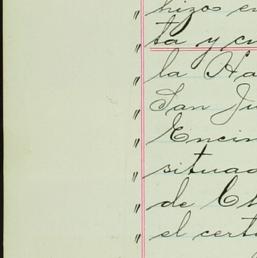 " hizos en
" ta y cu
" la Ha
" San Ju
" Encin
" situad
" de Ch
" el cert